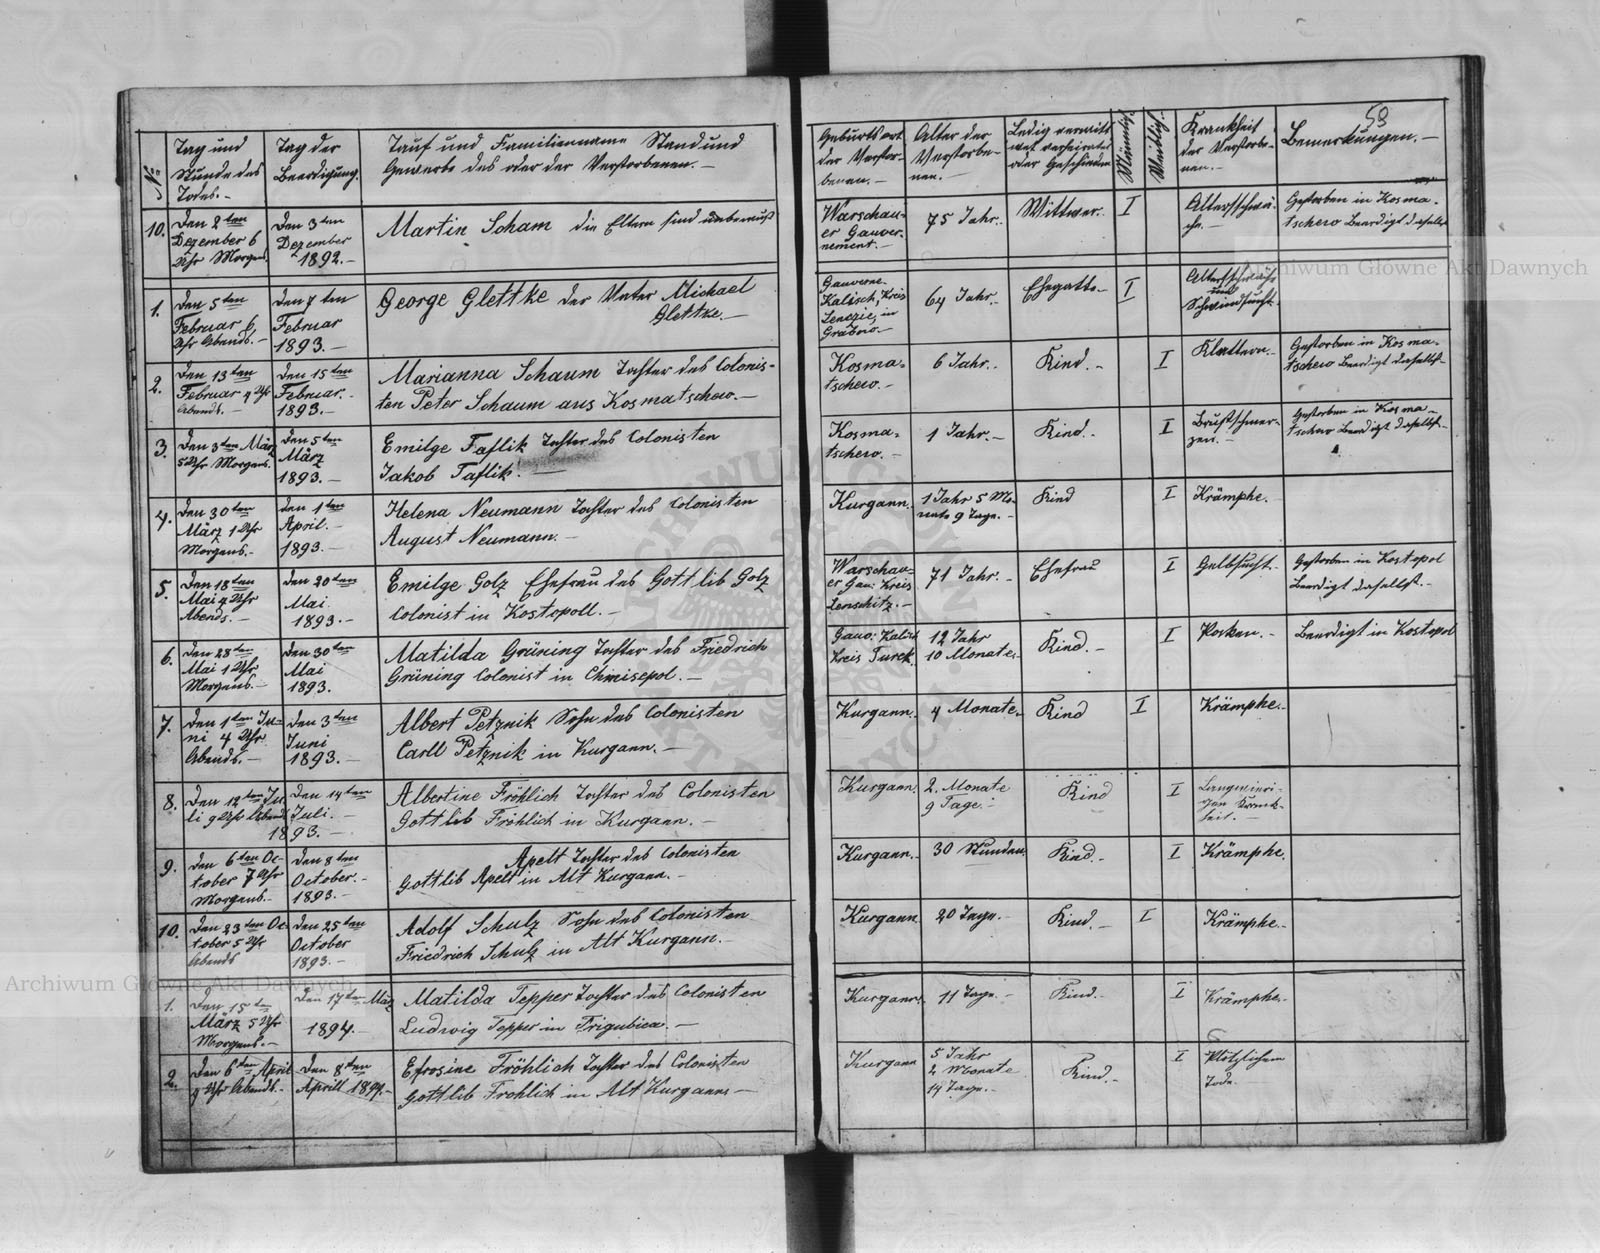 58
No
Tag und
Stunde des
Todes.-
Tag der
Beerdigung.
Tauf und Familienname Stand und
Gewerbe des oder der Verstorbenen.-
Geburtsort
der Verstor-
benen.-
Alter der
Verstorbe-
nen.-
Ledig vermitt
wet verheiratet
oder Geschieden
Männlich
Weiblich.
Krankheit
der Verstorbe-
nen.-
Bemerkungen.-
10.
Den 2ten
Dezember 6
Uhr Morgens
Den 3ten
Dezember
1892.-
Martin Scham die Eltern sind unbewußt
Warschau-
er Gauver-
nement.-
75 Jahr.-
Wittwer.
I
Altersschwä-
che.-
Gestorben in Kosma-
tschewo Beerdigt daselbst
1.
Den 5ten
Februar 6
Uhr Abends.-
Den 7ten
Februar
1893.-
George Glettke der Vater Michael
Glettke.-
Gauverne-
Kalisch, Kreis
Lenczie, in
Grabno.-
64 Jahr.-
Ehegatte.-
I
Altersschwäche
und
Schwindsucht.
2.
Den 13ten
Februar 9 Uhr
Abends.-
Den 15ten
Februar.-
1893.-
Marianna Schaum Tochter des Colonis-
ten Peter Schaum aus Kosmatschew.-
Kosma-
tschewo.-
6 Jahr.-
Kind.-
I
Blattern.-
Gestorben in Kosma-
tschewo Beerdigt daselbst-
3.
Den 3ten März
5 Uhr Morgens.
Den 5ten
März
1893.-
Emilge Taflik Tochter des Colonisten
Jakob Taflik.-
Kosma-
tschewo.-
1 Jahr.-
Kind.-
I
Brustschmer-
zen.-
Gestorben in Kosma-
tschewo Beerdigt daselbst-
4.
Den 30ten
März 1 Uhr
Morgens.-
Den 1ten
April.-
1893.-
Helena Neumann Tochter des Colonisten
August Neumann.-
Kurgann.
1 Jahr 5 Mo-
nate 9 Tage.-
Kind
I
Krämphe.
5.
Den 18ten
Mai 9 Uhr
Abends.-
Den 20ten
Mai
1893.-
Emilge Golz Ehefrau des Gottlieb Golz
Colonist in Kostopoll.-
Warschau-
er Gau: Kreis
Lenschitz.-
71 Jahr.-
Ehefrau
I
Gelbsucht.-
Gestorben in Kostopol
Beerdigt daselbst.-
6.
Den 28ten
Mai 1 Uhr
Morgens.-
Den 30ten
Mai
1893.
Matilda Grüning Tochter des Friedrich
Grüning Colonist in Chmisepol.-
Gauv: Kalisch
Kreis Turek.
12 Jahr
10 Monate.
Kind.-
I
Pocken.-
Beerdigt in Kostopol
7.
Den 1ten Ju-
ni 4 Uhr
Abends.-
Den 3ten
Juni
1893.-
Albert Petznik Sohn des Colonisten
Carll Petznik in Kurgann.-
Kurgann.
4 Monate.
Kind
I
Krämphe.-
8.
Den 12ten Ju-
li 9 Uhr Abend
Den 14ten
Juli.-
1893.-
Albertine Fröhlich Tochter des Colonisten
Gottlib Fröhlich in Kurgann.-
Kurgann.
2. Monate
9 Tage.-
Kind
I
Langwieri-
gen Krank-
heit.-
9.
Den 6ten Oc-
tober 7 Uhr
Morgens.-
Den 8ten
October.-
1893.-
Apelt Tochter des Colonisten
Gottlib Apelt in Alt Kurgann.-
Kurgann.-
30 Stunden.
Kind.-
I
Krämphe.
10.
Den 23ten Oc-
tober 5 Uhr
Abends
Den 25ten
October
1893.-
Adolf Schulz Sohn des Colonisten
Friedrich Schulz in Alt Kurgann.-
Kurgann
20 Tage.-
Kind.-
I
Krämphe.-
1.
Den 15ten
März 5 Uhr
Morgens.-
Den 17ten März
1894.-
Matilda Tepper Tochter des Colonisten
Ludwig Tepper in Trigubica.-
Kurgann.
11 Tage.-
Kind.-
I
Krämphe.
2.
Den 6ten April
9 Uhr Abends.-
Den 8ten
Aprill 1894.-
Efrosine Fröhlich Tochter des Colonisten
Gottlib Fröhlich in Alt Kurgann-
Kurgann
5 Jahr
2 Monate
14 Tage.-
Kind.-
I
Plötzlichem
Tode.
Archiwum Główne Akt Dawnych
Archiwum Główne Akt Dawnych